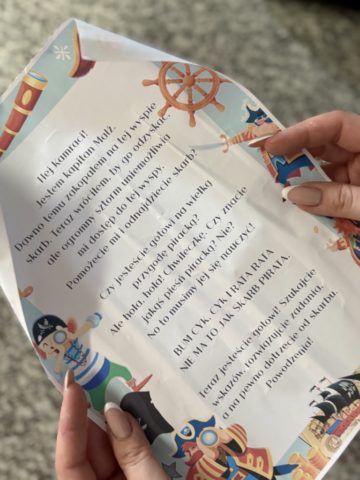 Hej kamraci!
Jestem kapitan Malż.
Dawno temu zakopałem na tej wyspie
skarb. Teraz wróciłem, by go odzyskać,
ale ogromny sztorm uniemożliwia
mi dostęp do tej wyspy.
Pomożecie mi i odnajdziecie skarb?
Czy jesteście gotowi na wielką
przygodę piracką?
Ale hola, hola! Chwileczkę. Czy znacie
jakąś pieśń piracką? Nie?
No to musimy jej się nauczyć!
BUM CYK, CYK I RATA RATA
NIE MA TO JAK SKARB PIRATA.
Teraz jesteście gotowi! Szukajcie
wskazów, rozwiązujcie zadania,
a na pewno dotrzecie do skarbu.
Powodzenia!